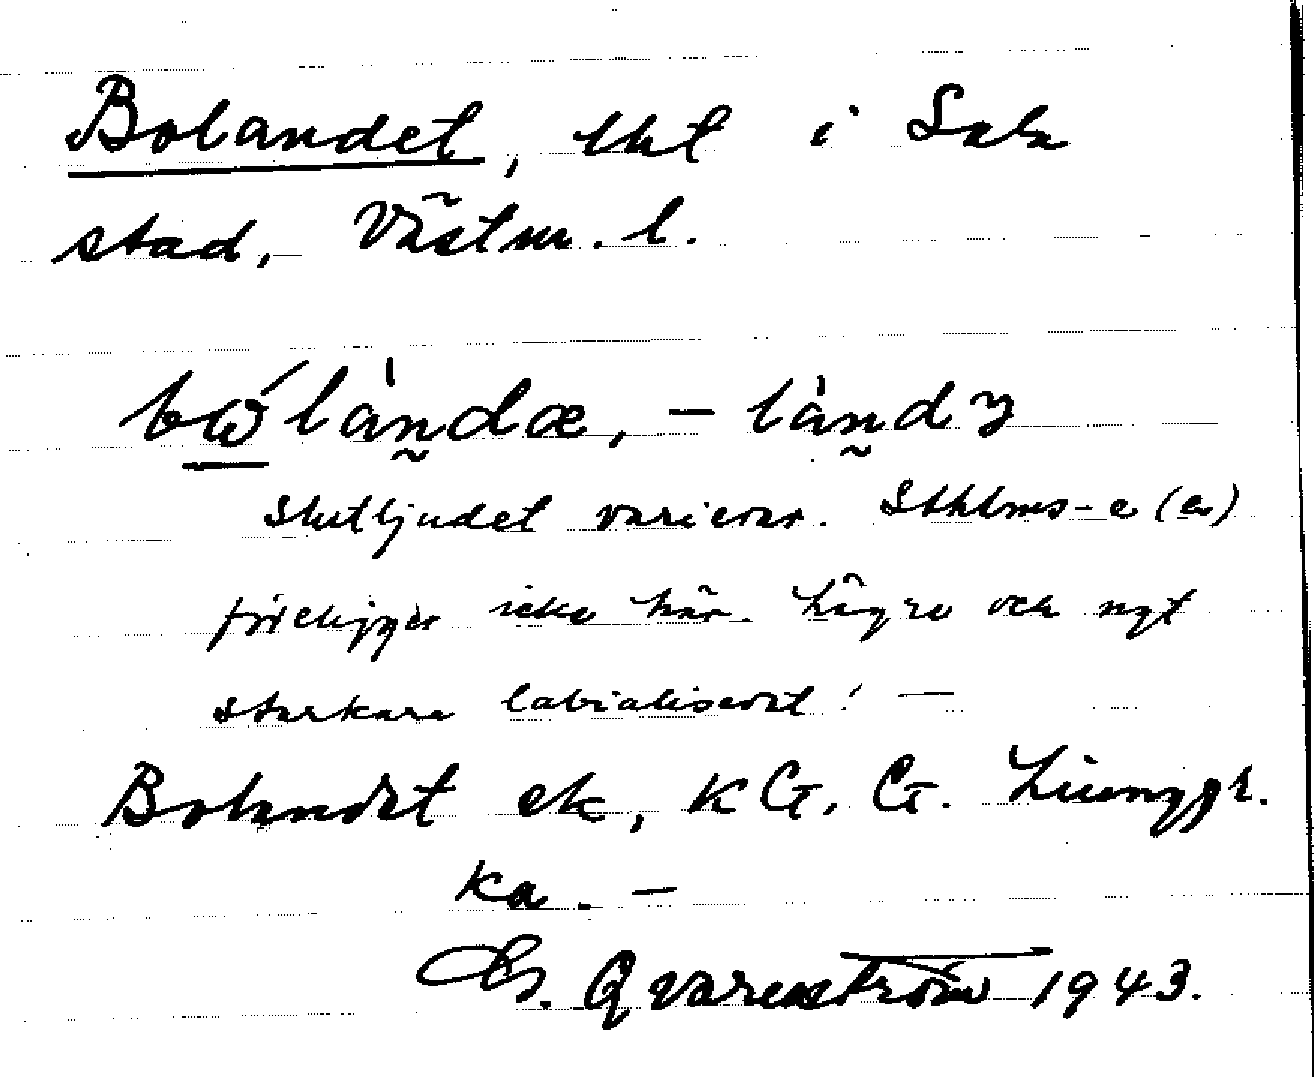 Bolandet, tkt i Sala
stad, Västm. l.
bώlàndæ, – ländy
Slutljudet varierar. Sthlms-e (æ)
föreligger icke här. Lägre och ngt
starkare labialiserat! —
Bolandet ek, KG, G. Ljunggr.
ka. —
G. Qvarnström 1943.